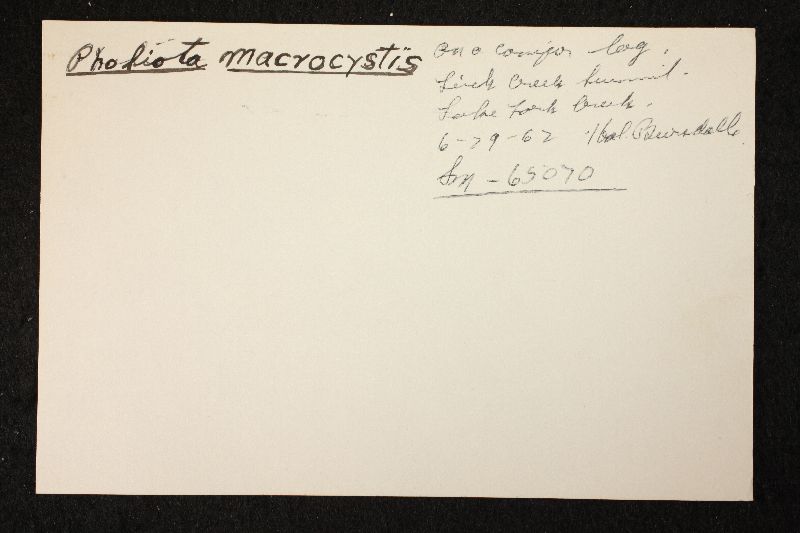 Pholiota macrocystis
on a conifer log.
Lick Creek Summit.
Lake Fork Creek.
6-29-62 Hal. Burdsall.
Sm-65070